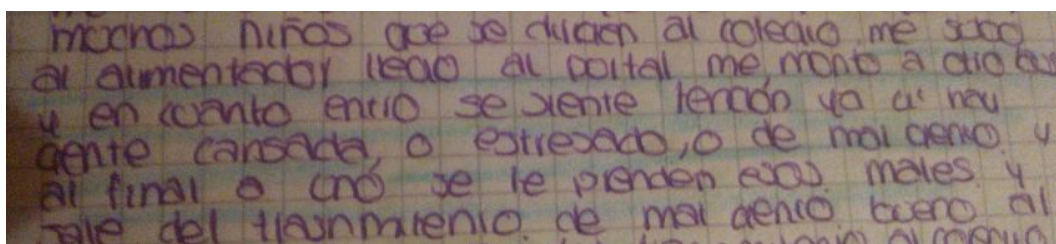 muchos niños que se dirigen al colegio me subo
al alimentador llego al portal me monto a otro bus
y en cuanto entro se siente tención ya qu hay
gente cansada, o estresado, o de mal genio y
al final a uno se le prenden esos males y
sale del de mal genio bueno al